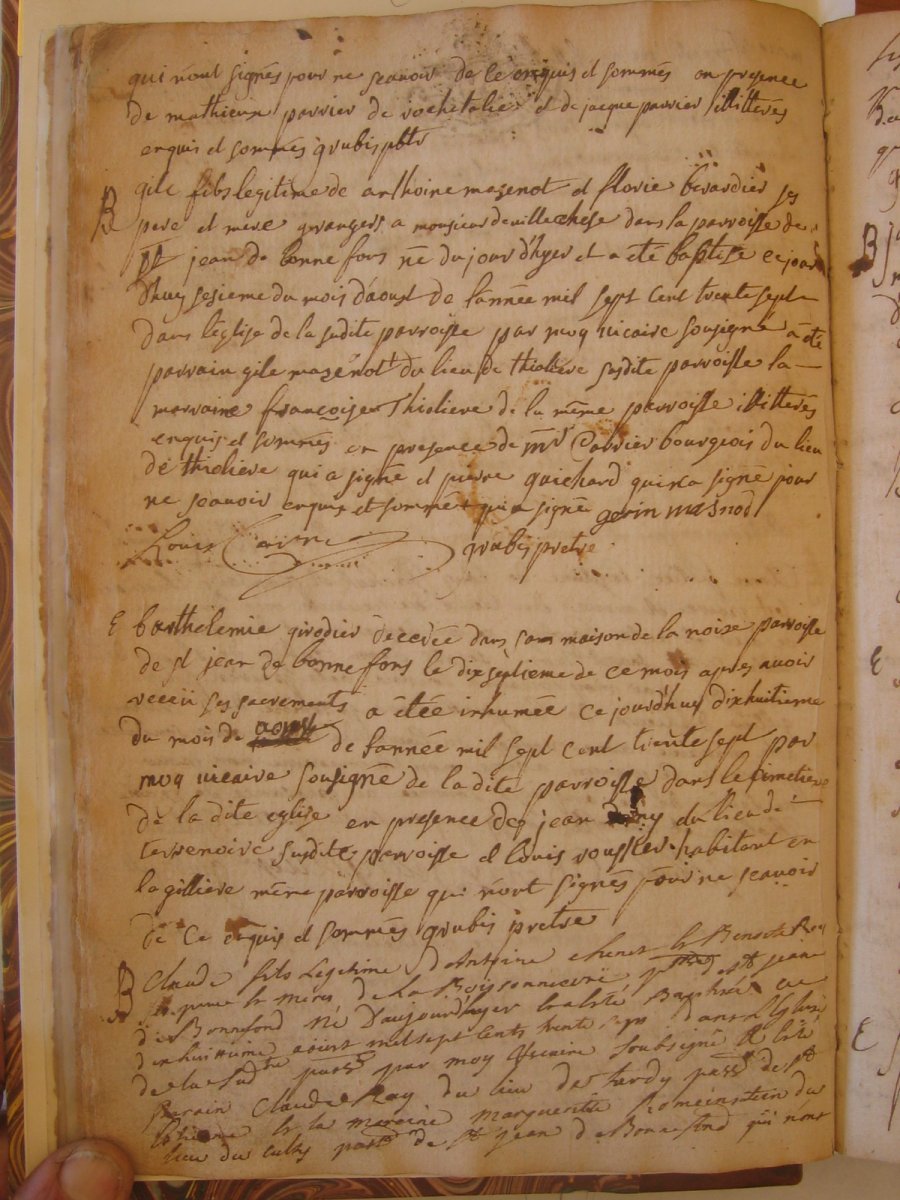 qui n'ont signés pour ne scavoir de ce enquis et sommés en presence
de mathieu perrier de rochetalié et de jacque perrier illitterés
enquis et sommés grubis pbtr
B gile fils legitime de anthoine mazenot et florie berardier ses
pere et mere grangers a monsieur deville chese dans la parroisse de
St jean de bonnefons né du jour d'hyer et a eté baptisé ce jour
d'huy sesieme du mois daoust de l'année mil sept cent trente sept
dans l'église de la sudite parroisse par moy vicaire sousigné a été
parrain gile mazenot du lieu de thioliere susdite parroisse la
marraine françoise thioliere de la même parroisse illitterés
enquis et sommés en presence de mr bourgeois du lieu
de thioliere qui a signé et pierre guichard qui n'a signé pour
ne scavoir enquis et sommé qui a signé gerin masnod
Louis grubis pretre
E barthelemie girodier decedée dans sa maison de la noire parroisse
de st jean de bonnefons le dixseptieme de ce mois apres avoir
receü ses sacrements a étée inhumée ce jourd'huy dixhuitieme
du mois de aoust de l'année mil sept cent trente sept par
moy vicaire sousigné de la dite parroisse dans le cimetiere
de la dite eglise en presence de jean du lieu de
terrenoire susdite parroisse et louis roussier habitant en
la gilliere même parroisse qui n'ont signés pour ne scavoir
de ce enquis et sommés grubis pretre
B Claude fils Legitime d'Antoine chenet et Benoite Ray
ses pere et mere de La parsse de st jean
de Bonnefond Né d'aujourd'huyer et a eté Baptisé ce
dixhuitieme aoust mil sept cents trente sept dans L'Eglise
de la sudte parsse par moy vicaire soubsigné et a été
parain Claude Ray du lieu de tardy parsse de st
Etienne et la maraine marguerite du
lieu du parsse de st jean de Bonnefond qui n'ont